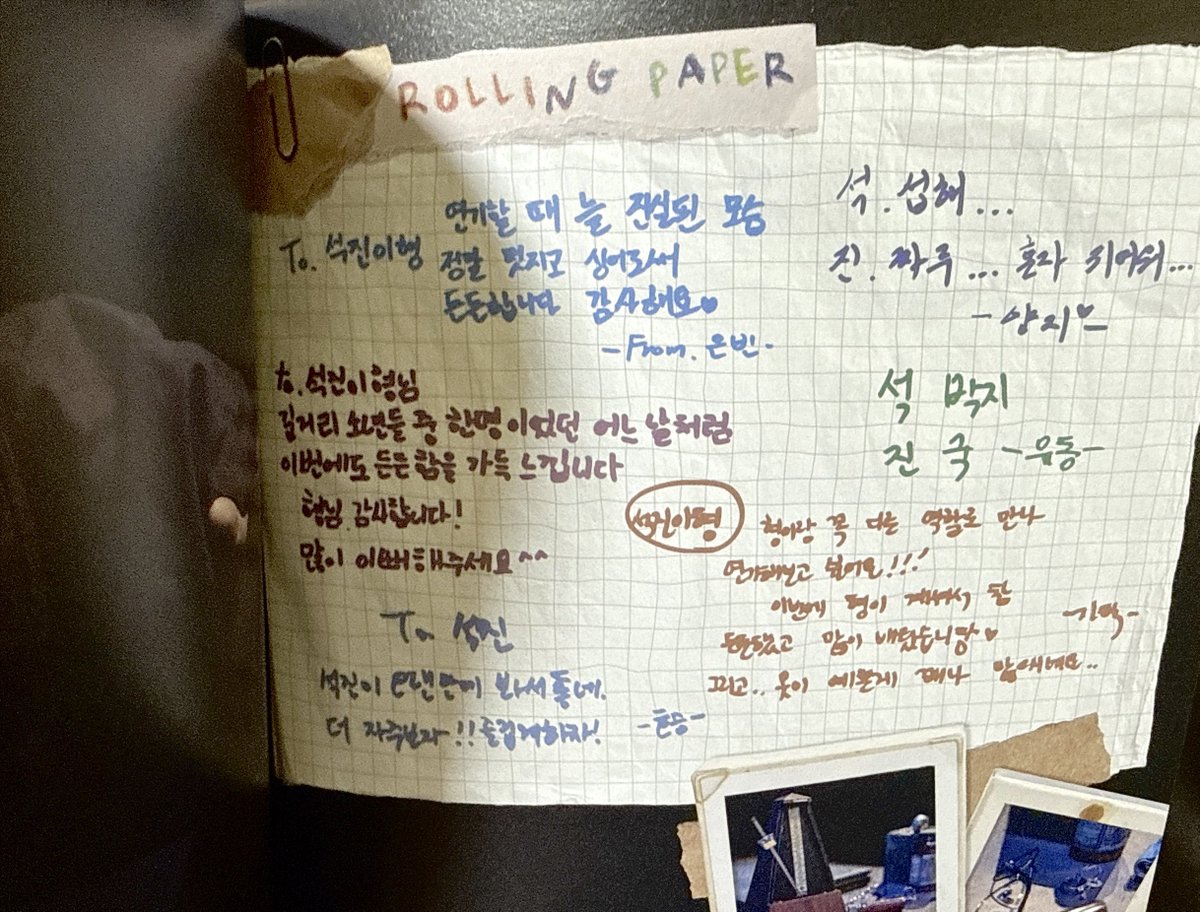 ROLLING PAPER
To. 석진이형
연기할 때 늘 진실된 모습
정말 멋지고 싶어로써
든든합니다 감사해요♡
-From. 은빈-
석. 섭해...
진. 짜루... 혼자 외어워...
-양지♡-
to. 석진이형님
길거리 소년들 중 한명이었던 어느 날처럼
이번에도 든든함을 가득 느낍니다
형님 감사합니다!
많이 이뻐해주세요^^
석 박지
진 국 -유동-
석진이형
형이랑 꼭 다른 역할로 만나
연기해보고 싶어요!!!
이번에 형이 계셔서 참
든든했고 많이 배웠습니당♡
그리고.. 옷이 예쁜게 꽤나 많으네요..
To 석진
석진이 오랜만에 봐서 좋네.
더 자주보자!! 즐겁게하자!
-훈승-